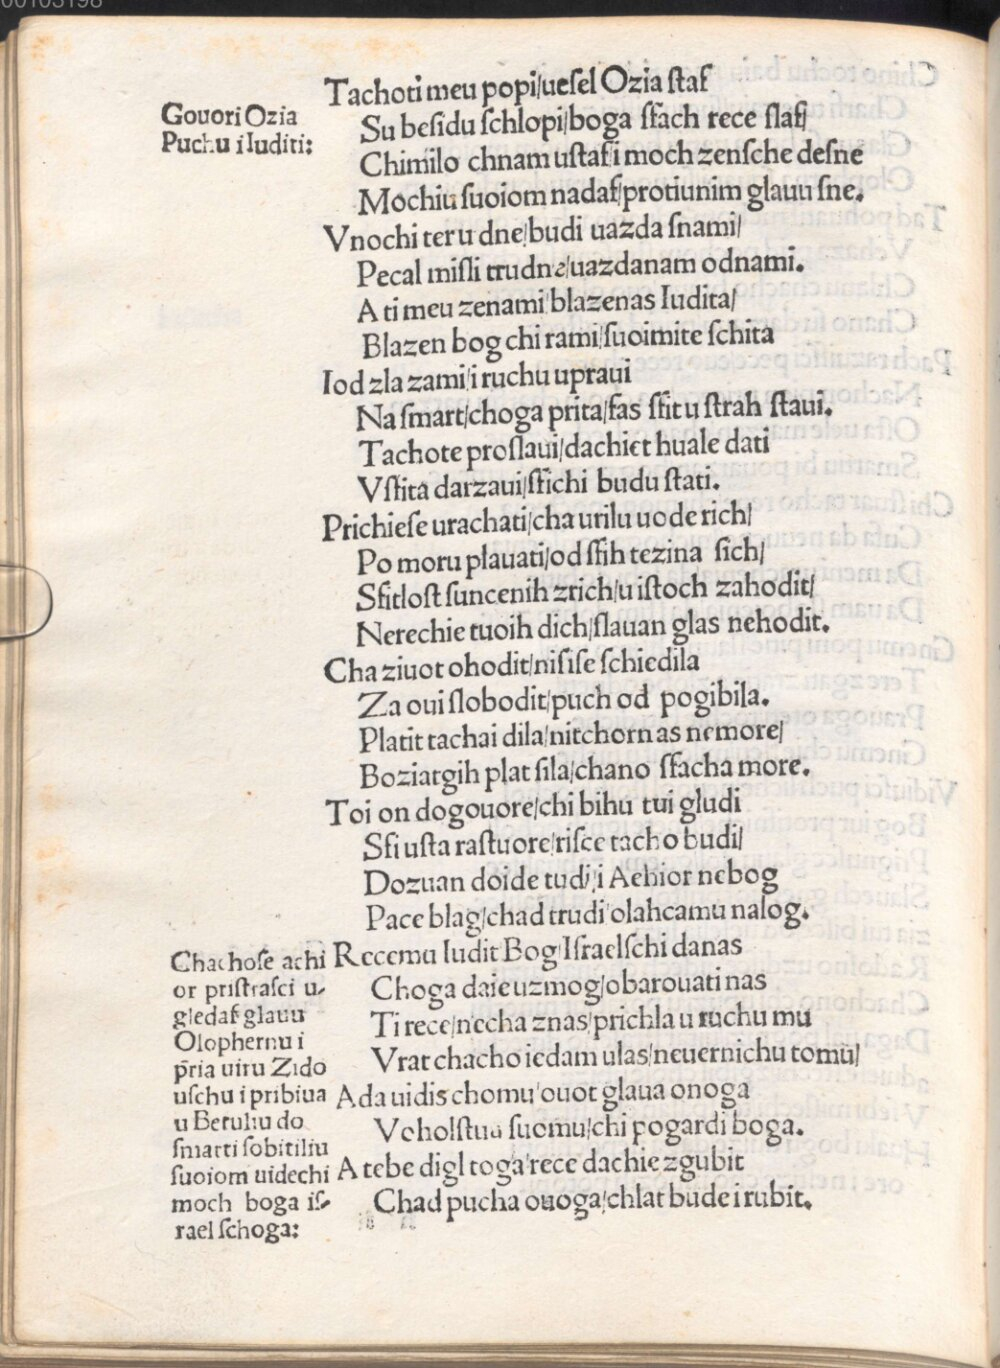 00103198
Tachoti meu popi/ueſel Ozia ſtaf
Gouori Ozia
Puchu i Iuditi:
Su beſidu ſchlopi/boga ſfach rece ſlaf/
Chimilo chnam uſtaf/i moch zenſche deſne
Mochiu ſuoiom nadaf/protiunim glauu ſne.
Vnochi ter u dne/budi uazda ſnami/
Pecal miſli trudne/uazdanam odnami.
A ti meu zenami/blazenas Iudita/
Blazen bog chi rami/ſuoimite ſchita
Iod zla zami/i ruchu upraui
Na ſmart/choga prita/fas ſfit u ſtrah ſtaui.
Tachote proſlaui/dachiet huale dati
Vſfita darzaui/ſfichi budu ſtati.
Prichieſe urachati/cha urilu uode rich/
Po moru plauati/od ſfih tezina ſich/
Sfitloſt ſuncenih zrich/u iſtoch zahodit/
Nerechie tuoih dich/ſlauan glas nehodit.
Cha ziuot ohodit/niſiſe ſchiedila
Za oui ſlobodit/puch od pogibila.
Platit tachai dila/nitchorn as nemore/
Boziatgih plat ſila/chano ſfacha more.
Toi on dogouore/chi bihu tui gludi
Sfi uſta raſtuore/riſce tacho budi/
Dozuan doide tudi/i Aehior nebog
Pace blag/chad trudi olahcamu nalog.
Chachoſe achi
or priſtraſci u-
gledaf glauu
Olophernu i
p̄ria uiru Zido
uſchu i pribiua
u Betuliu do
ſmarti ſobitiliu
ſuoiom uidechi
moch boga iſ-
rael ſchoga:
Recemu Iudit Bog/Iſraelſchi danas
Choga daie uzmog/obarouati nas
Ti rece/necha znas/prichla u ruchu mu
Vrat chacho iedam ulas/neuernichu tomū/
A da uidis chomu/ouot glaua onoga
Vcholſtua ſuomu/chi pogardi boga.
A tebe digl toga/rece dachie zgubit
Chad pucha ouoga/chlat bude i rubit.